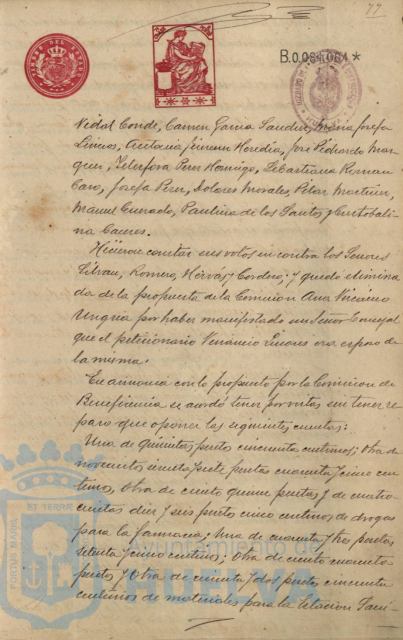 77
TIMBRE DEL ESTADO
B.0.084.064 *
Vidal Conde, Carmen Garcia Sanchez, Maria Josefa
Linares, Antonia Jimenez Heredia, José Pichardo Mar-
quez, Telesfora Perez Hornigo, Sebastiana Roman
Caro, Josefa Perez, Dolores Morales, Pilar Martin,
Manuel Cuenado, Paulina de los Santos y Custodia
Caceres.
Hicieron constar sus votos en contra los Señores
Silvan, Romero, Hervás y Cordero; y quedó elimina
da de la propuesta de la Comision Ana
Ungria por haber manifestado un Señor Concejal
que el peticionario Venancio Linares era esposo de
la misma.
En armonia con lo propuesto por la Comision de
Beneficencia se acordó tener por vistas sin tener re
paro que oponer las siguientes cuentas:
Una de quinientas pesetas cincuenta centimos; Otra de
novecientas y siete pesetas cuarenta y cinco cen
timos, Otra de ciento quince pesetas y de cuatro
cientas diez y seis pesetas cinco centimos de drogas
para la farmacia; Una de cuarenta y tres pesetas
setenta y cinco centimos; Otra de ciento cuarenta
pesetas y Otra de cincuenta y dos pesetas cincuenta
centimos de materiales para la Estacion Sani-
PORTUS MARIS
ET TERRE
Ayuntamiento de
HUELVA